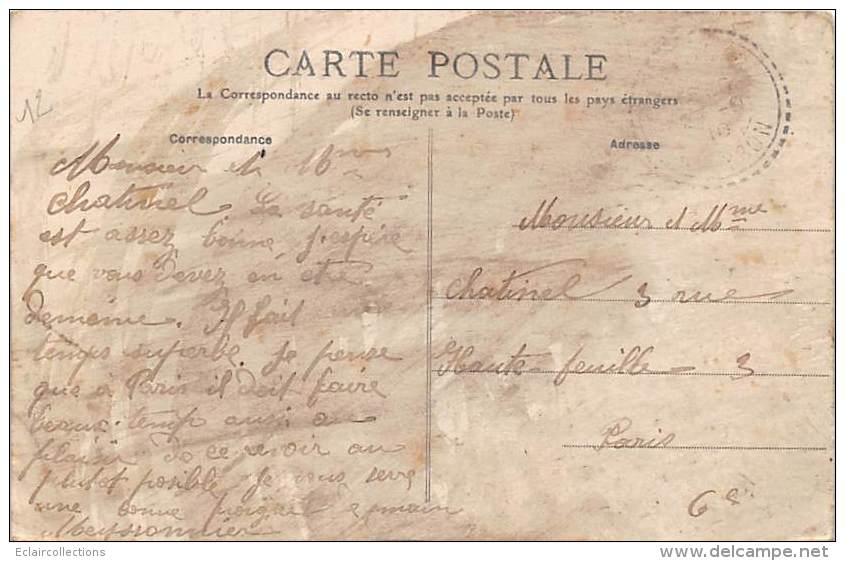 12
CARTE POSTALE
La Correspondance au recto n'est pas acceptée par tous les pays étrangers
(Se renseigner à la Poste)
Correspondance
Adresse
RON
Monsieur et Mme
Chatinel. La santé
est assez bonne j'espère
que vous devez en être
demême. Il fait un
temps superbe. Je pense
que à Paris il doit faire
beaux temp aussi au
plaisir de ce revoir au
plutot posible. Je vous sere
une bonne poigné e main
Meyssonnier
Monsieur et Mme
Chatinel 3 rue
Haute-feuille - 3
Paris
6e
Eclaircollections
www.delcampe.net